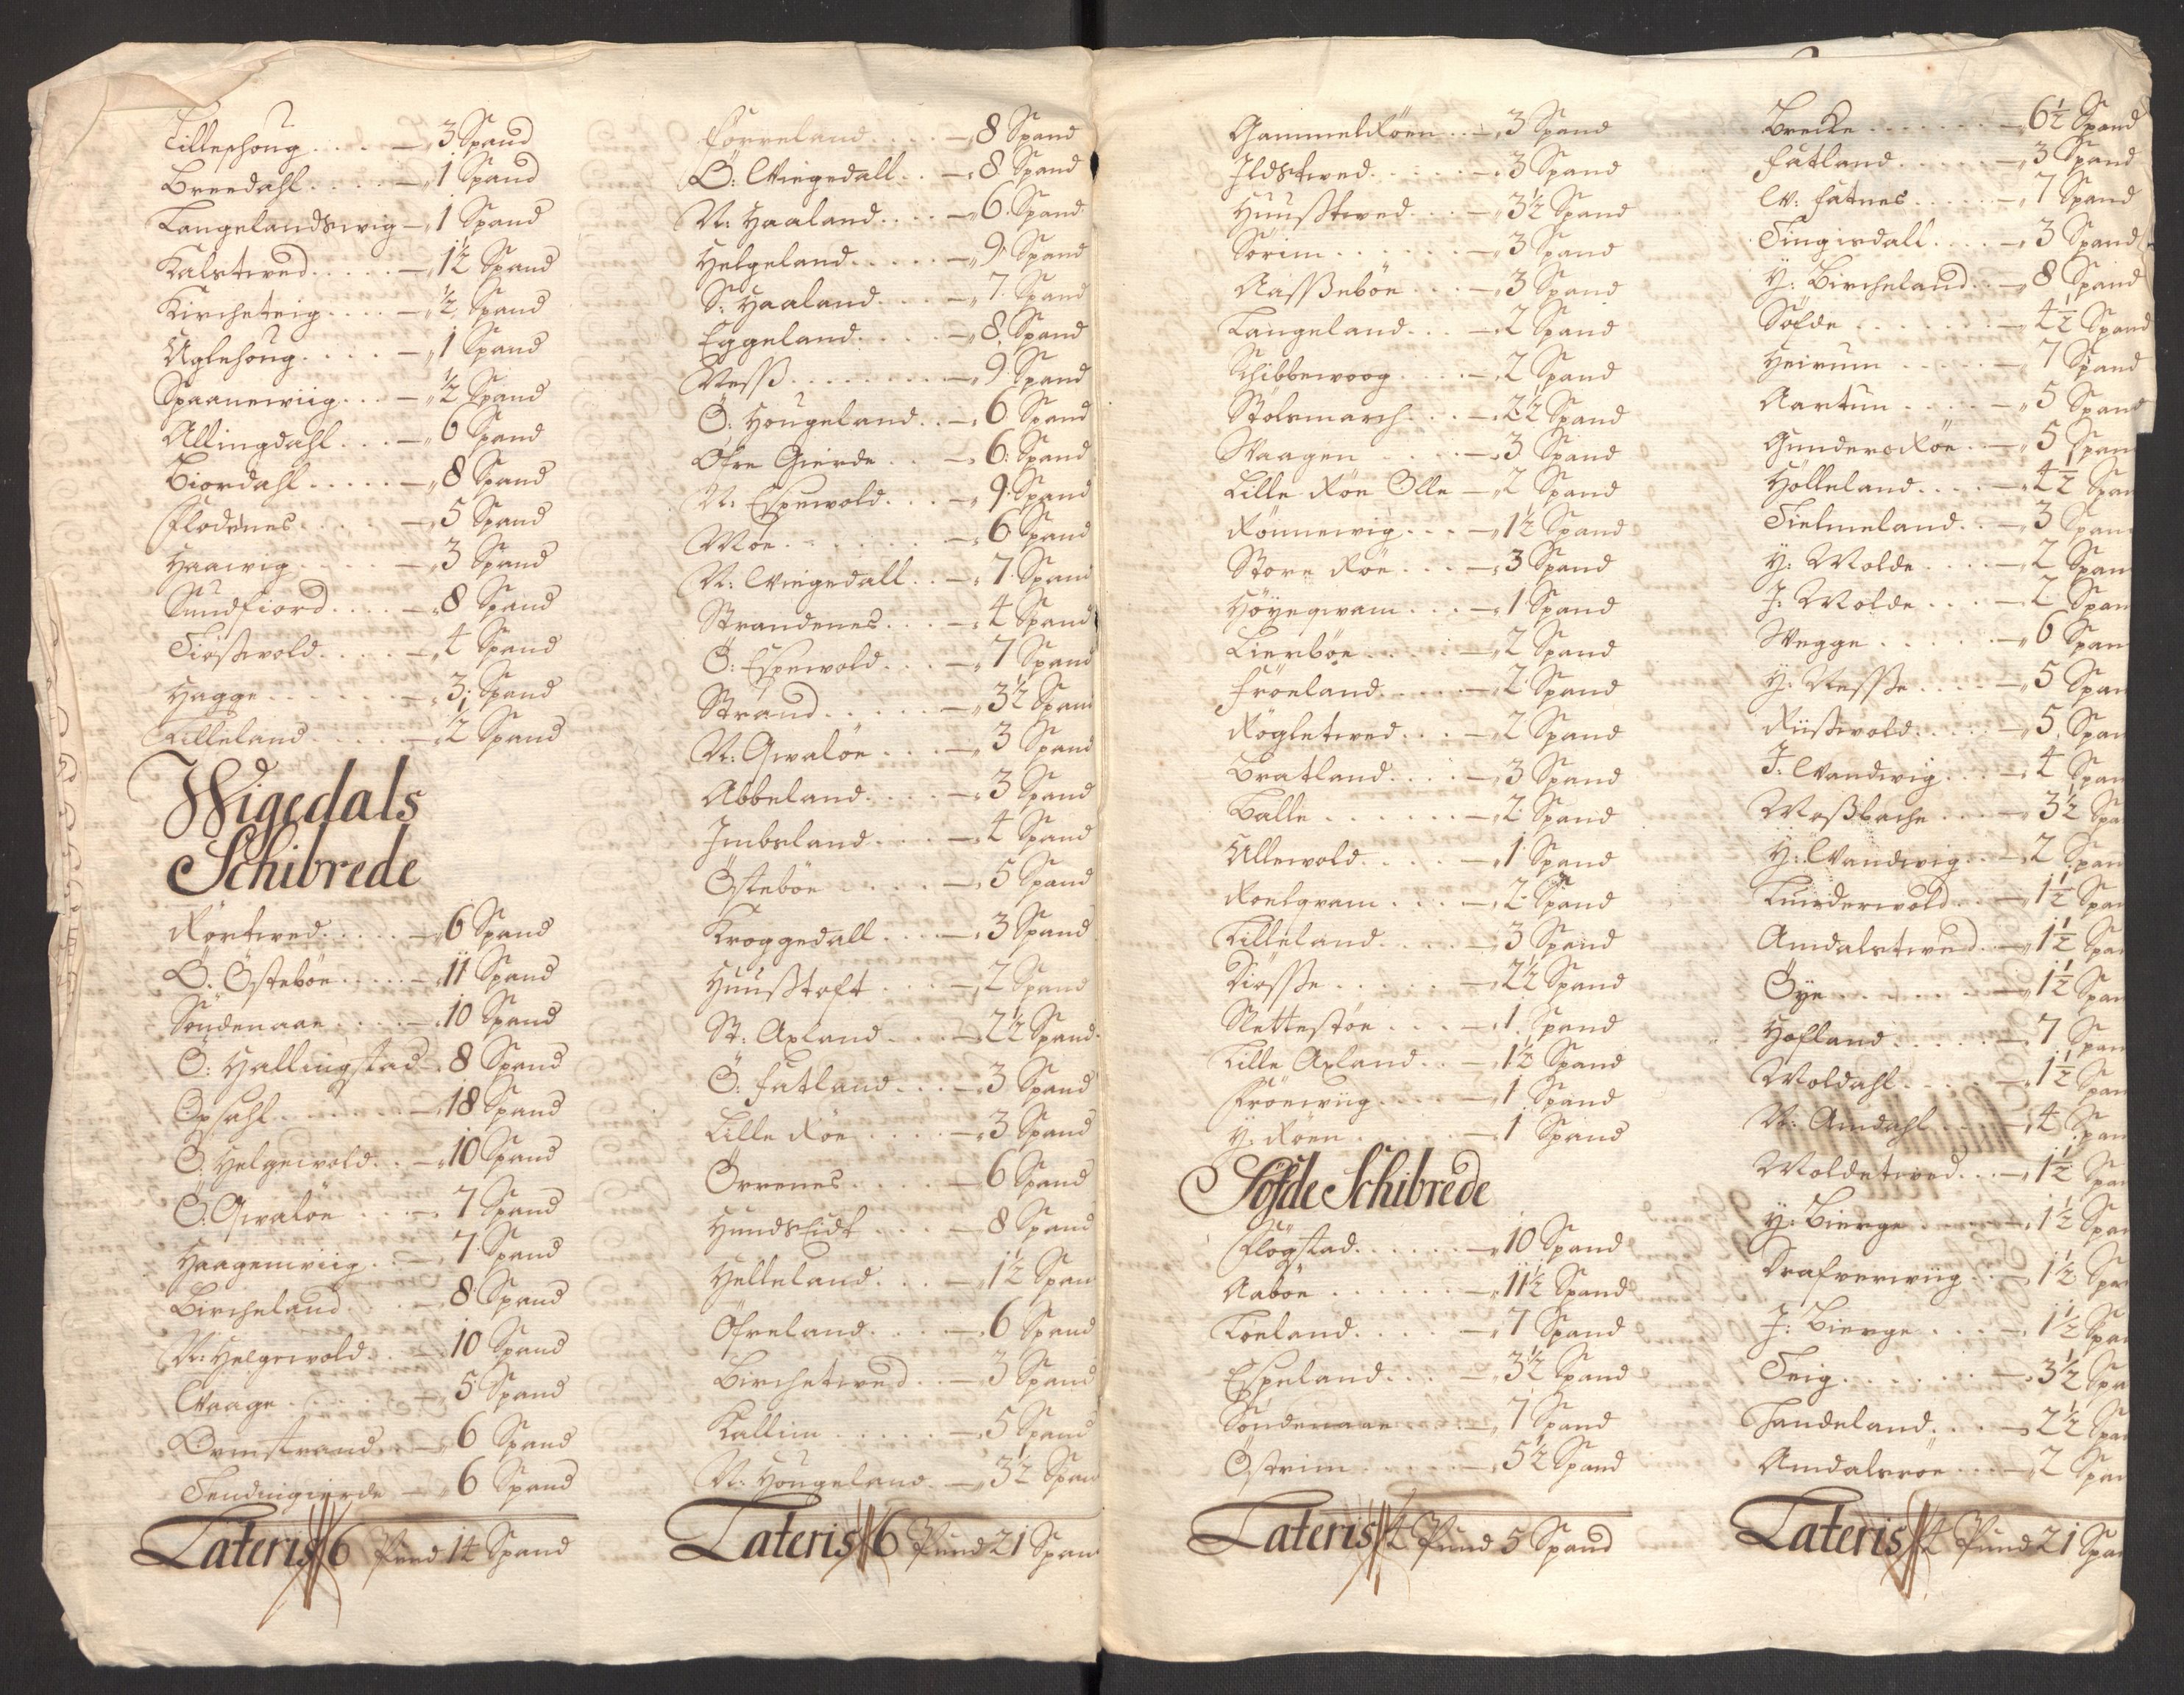 Tilleshoug .... 3 Spand
Breedahl .... 1 Spand
Langelandswig 1 Spand
Kalstwed .... 1½ Spand
Kircheteig .... ½ Spand
Uglehoug .... 1 Spand
Spaanewiig ... ½ Spand
Allingdahl ... 6 Spand
Biordahl ..... 8 Spand
Flodenes .... 5 Spand
Haawig .... 3 Spand
Sundfiord .... 8 Spand
Tioßwold .... 4 Spand
Hagge ...... 3 Spand
Lilleland ..... ½ Spand
Wigedals
Schibrede
Rørtwed ..... 6 Spand
Ö: Östeböe ..... 11 Spand
Söndenaae .... 10 Spand
Ö: Hallingstad 8 Spand
Opsahl ....... 18 Spand
Ö: Helgewold .. 10 Spand
Ö: Qwalöe ... 7 Spand
Haagenwiig .. 7 Spand
Bircheland ... 8 Spand
N: Helgewold .. 10 Spand
Waage ...... 5 Spand
Ormstrand .. 6 Spand
Tendingierde 6 Spand
Lateris 6 Pund 14 Spand
Førreland .... 8 Spand
Ö: Wiegedall .. 8 Spand
N: Haaland .... 6 Spand
Helgeland ..... 9 Spand
S: Haaland ... 7 Spand
Eggeland .... 8 Spand
Næss ........ 9 Spand
Ö: Hougeland .. 6 Spand
Öfre Gierde .. 6 Spand
N: Espewold ... 9 Spand
Moe ....... 6 Spand
N: Wiegedall .. 7 Spand
Strandenes ... 4 Spand
Ö: Espewold ... 7 Spand
Strand ..... 3½ Spand
N: Qwalöe ... 3 Spand
Abbeland .... 3 Spand
Imbsland ... 4 Spand
Östeböe .... 5 Spand
Kroggedall ... 3 Spand
Huußtoft ... 2 Spand
St: Axland ... 2½ Spand
Ö: Fatland ... 3 Spand
Lille Röe .... 3 Spand
Örrenes .... 6 Spand
Hundseidt ... 8 Spand
Helleland ... 1½ Span
Öfreland .... 6 Spand
Birchetwed .. 3 Spand
Kallim ..... 5 Spand
N: Hougeland . 3½ Span
Lateris 6 Pund 21 Span
Gammelröen .. 3 Spand
Ildstwed ..... 3 Spand
Huußtwed ... 3½ Spand
Sörim ...... 3 Spand
Aasßeböe ... 3 Spand
Langeland ... 2 Spand
Schibbewoog ... 2 Spand
Stölsmarch ... 2½ Spand
Waagen .... 3 Spand
Lille Röe Olle 2 Spand
Rönnewig ... 1½ Spand
Store Röe ... 3 Spand
Höyeqwam ... 1 Spand
Lierböe .... 2 Spand
Fröeland .... 2 Spand
Rögletwed ... 2 Spand
Bratland .... 3 Spand
Balle ....... 2 Spand
Ullewold .... 1 Spand
Roelqvam .... 2 Spand
Lilleland .... 3 Spand
Diösse ...... 2½ Spand
Slettestöe ... 1 Spand
Lille Axland .. 1½ Spand
Fröewiig .... 1 Spand
Y: Röen ..... 1 Spand
Söfde Schibrede
Flögstad ...... 10 Spand
Aaböe ...... 11½ Spand
Löeland .... 7 Spand
Espeland ... 3½ Spand
Söndenaae ... 7 Spand
Östrim ..... 5½ Spand
Lateris 4 Pund 5 Spand
Brecke ....... 6½ Spand
Fatland ..... 3 Spand
W: Fatnes ..... 7 Spand
Tingisdall .... 3 Spand
Y: Bircheland .. 8 Spand
Söfde ...... 4½ Spand
Heirum ..... 7 Spand
Aartun ..... 5 Spand
Gundersröe .. 5 Span
Hölleland .... 4½ Span
Tielmeland .. 3 Span
Y: Molde .... 2 Span
I: Molde ... 2 Span
Wegge ..... 6 Span
Y: Nesse .... 5 Span
Riißwold ..... 5 Span
I: Wandwig ... 4 Span
Moßbache .... 3½ Spa
Y: Wandwig .. 2 Span
Lunderwold .. 1½ Span
Amdalstwed .. 1½ Span
Öye ....... 1½ Span
Hofland ..... 7 Span
Moldahl .... 1½ Span
N: Amdahl .... 4 Span
Moldetwed ... 1½ Span
Y: Bierge ..... 1½ Spa
Drafverwiig .. 1½ Spa
I: Bierge .... 1½ Spa
Teig ...... 3½ Spa
Handeland ... 2½ Spa
Amdalsröe ... 2 Spa
Lateris 4 Pund 21 Spa